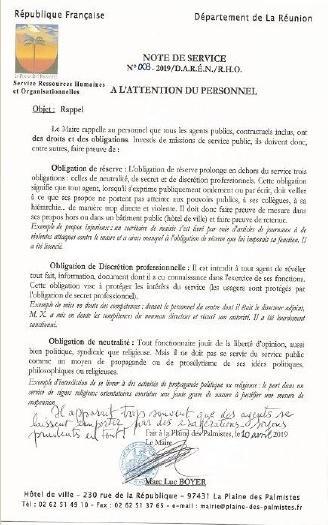 République Française
Département de La Réunion
NOTE DE SERVICE
N° 003 - 2019/D.A.R.É.N./R.H.O.
Service Ressources Humaines
et Organisationnelles
A L'ATTENTION DU PERSONNEL
Objet : Rappel
Le Maire rappelle au personnel que tous les agents publics, contractuels inclus, ont
des droits et des obligations. Investis de missions de service public, ils doivent donc,
entre autres, faire preuve de :
Obligation de réserve : L'obligation de réserve prolonge en dehors du service trois
obligations : celles de neutralité, de secret et de discrétion professionnels. Cette obligation
signifie que tout agent, lorsqu'il s'exprime publiquement oralement ou par écrit, doit veiller
à ce que ses propos ne portent pas atteinte aux pouvoirs publics, à ses collègues, à sa
hiérarchie... de manière trop directe et violente. Il doit donc faire preuve de mesure dans
ses propos hors ou dans un bâtiment public (hôtel de ville) et faire preuve de retenue.
Exemple de propos injurieux : un secrétaire de mairie s'est livré par voie d'articles de journaux à de
violentes attaques contre le maire et a ainsi manqué à l'obligation de réserve que lui imposait sa fonction. Il
a été licencié
Obligation de Discrétion professionnelle : Il est interdit à tout agent de révéler
tout fait, information, document dont il a eu connaissance dans l'exercice de ses fonctions.
Cette obligation vise à protéger les intérêts du service (les usagers sont protégés par
l'obligation de secret professionnel).
Exemple de mise en doute des compétences : devant le personnel du centre dont il était le directeur adjoint,
M. X. a mis en doute les compétences du nouveau directeur et récusé son autorité. Il a été lourdement
sanctionné.
Obligation de neutralité : Tout fonctionnaire jouit de la liberté d'opinion, aussi
bien politique, syndicale que religieuse. Mais il ne doit pas se servir du service public
comme un moyen de propagande ou de prosélytisme de ses idées politiques,
philosophiques ou religieuses.
Exemple d'interdiction de se livrer à des activités de propagande politique ou religieuse : le port dans un
service de signes religieux ostentatoires constitue une faute grave de nature à justifier une mesure de
suspension.
Il apparait trop souvent que des agents se
laissent emporter par des exagérations. Soyons
prudents en tout !
Fait à La Plaine des Palmistes, le 10 avril 2019
Le Maire
Marc Luc BOYER
Hôtel de ville - 230 rue de la République - 97431 La Plaine des Palmistes
Tél : 02 62 51 49 10 - Fax : 02 62 51 37 65 - email : mairie@plaine-des-palmistes.fr